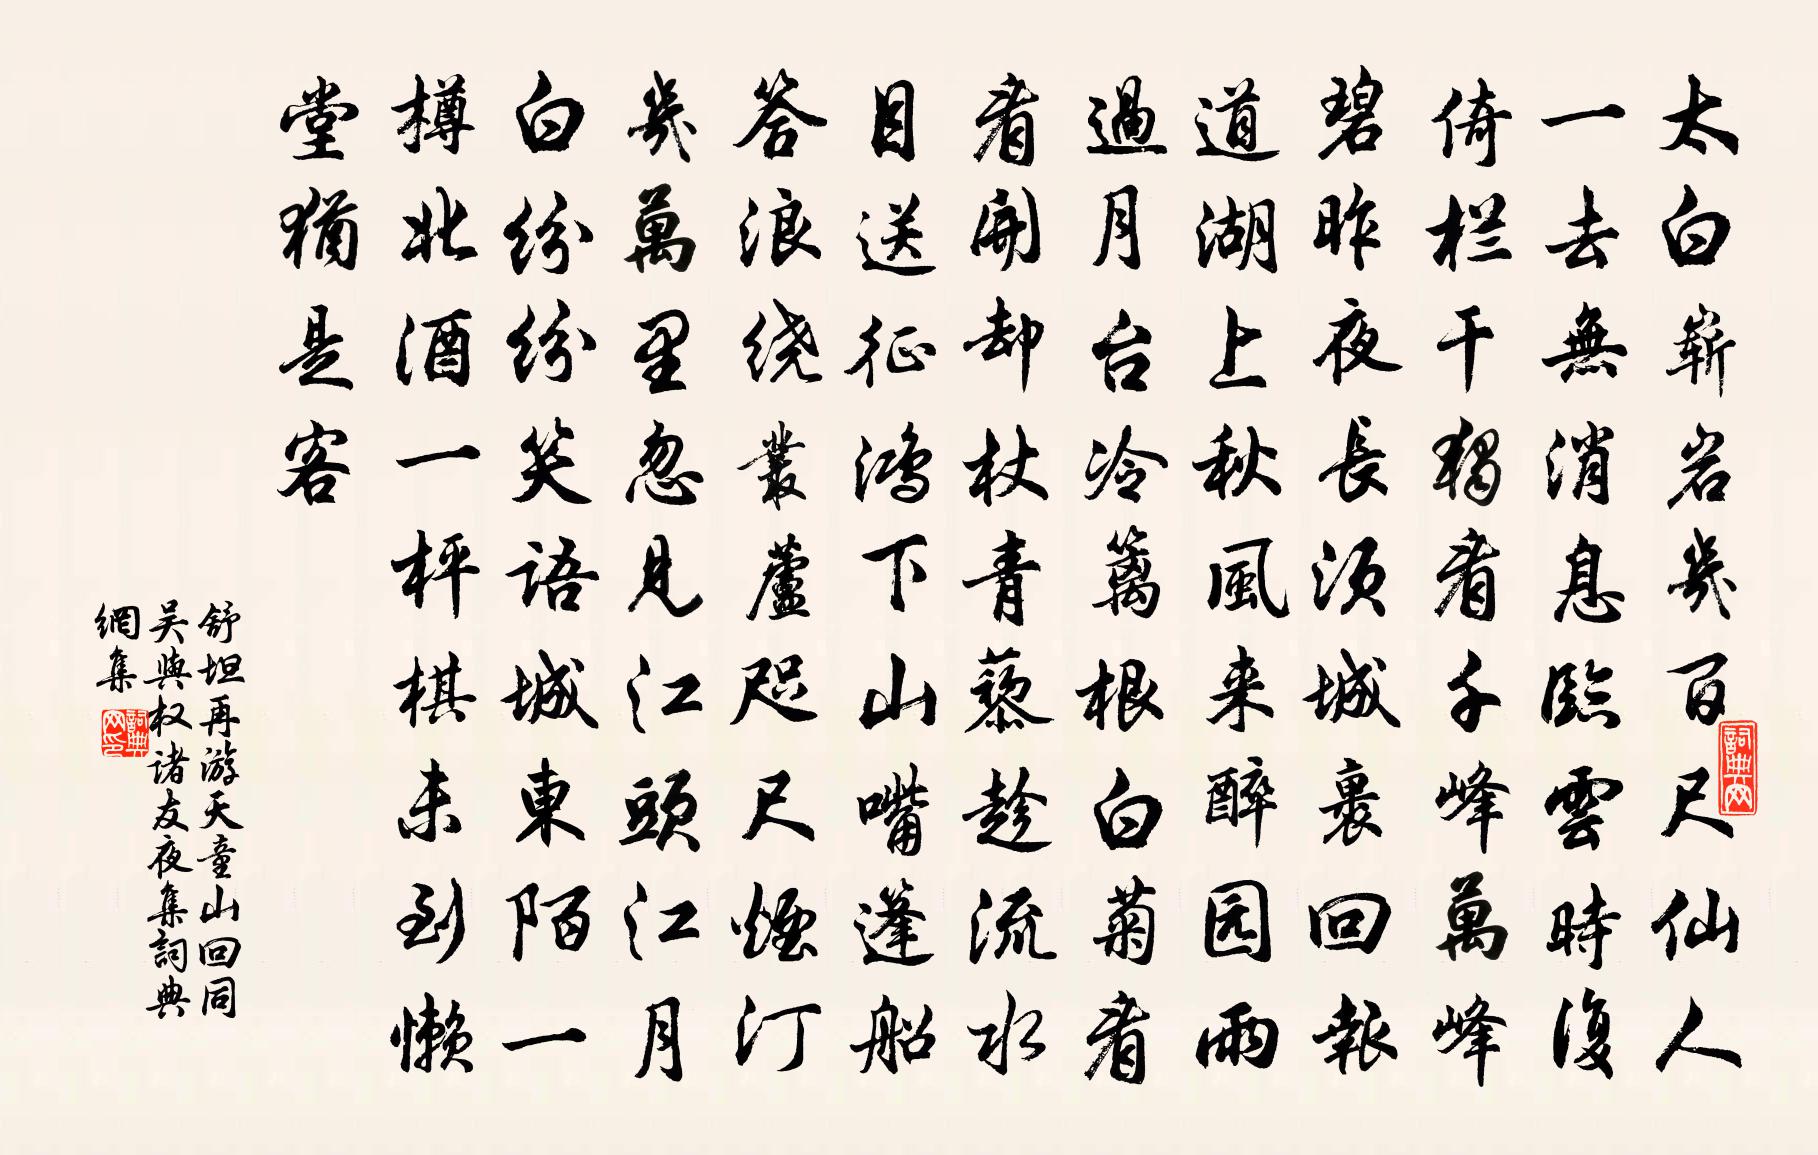 太白嶄岩幾百尺仙人
一去無消息臨雲時復
倚栏干獨看千峰萬峰
碧昨夜長須城裏回報
道湖上秋風来醉园雨
過月台冷篱根白菊看
看開却杖青藜趁流水
目送征鴻下山嘴篷船
答浪绕叢蘆咫尺煙汀
幾萬里忽見江頭江月
白纷纷笑語城東陌一
樽北酒一枰棋未到懒
堂猶是客
舒坦再游天童山回同
吴與权诸友夜集詞典
網集
詞典网
詞典网印